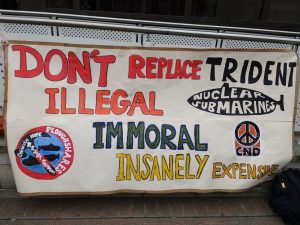 DON'T REPLACE TRIDENT
NUCLEAR
SUBMARINES
ILLEGAL
IMMORAL
CND
INSANELY EXPENSIVE
PLOUGHSHARES